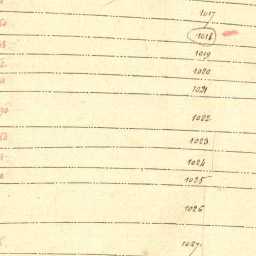 1017
1018
1019
1020
1021
1022
1023
1024
1025
1026
1027